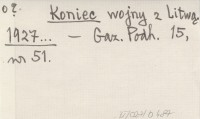 o?. Koniec wojny z Litwą.
1927... — Gaz. Podh. 15,
nr 51.